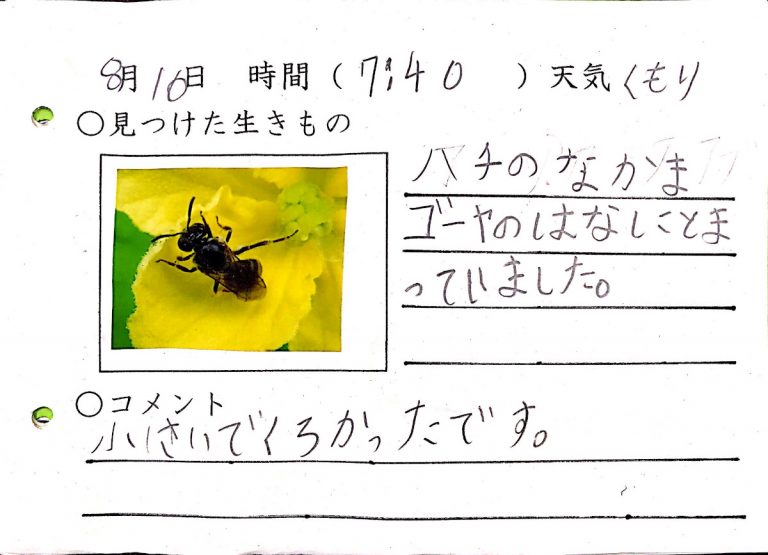 8月10日 時間(7:40)天気くもり
○見つけた生きもの
ハチのなかま
ゴーヤのはなにとま
っていました。
○コメント
小さいでくろかったです。